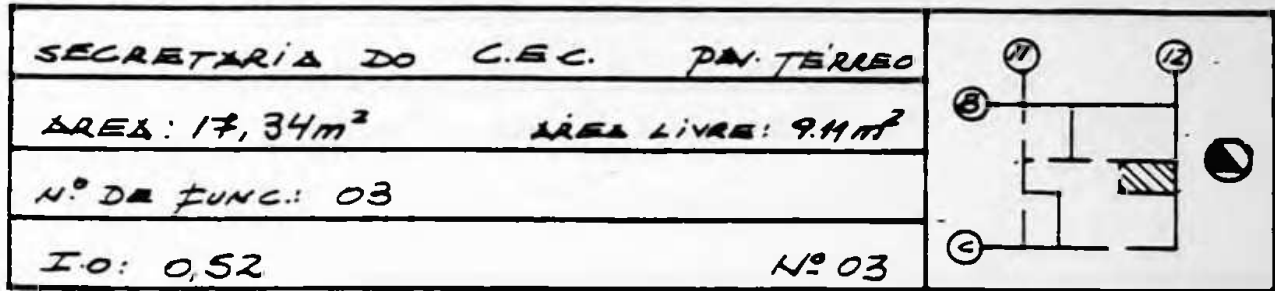 SECRETARIA DO C.E.C. PAV. TÉRREO
ÁREA: 17,34m² ÁREA LIVRE: 9.11m²
Nº DE FUNC.: 03
I.O: 0,52 Nº 03
11 12
B
C